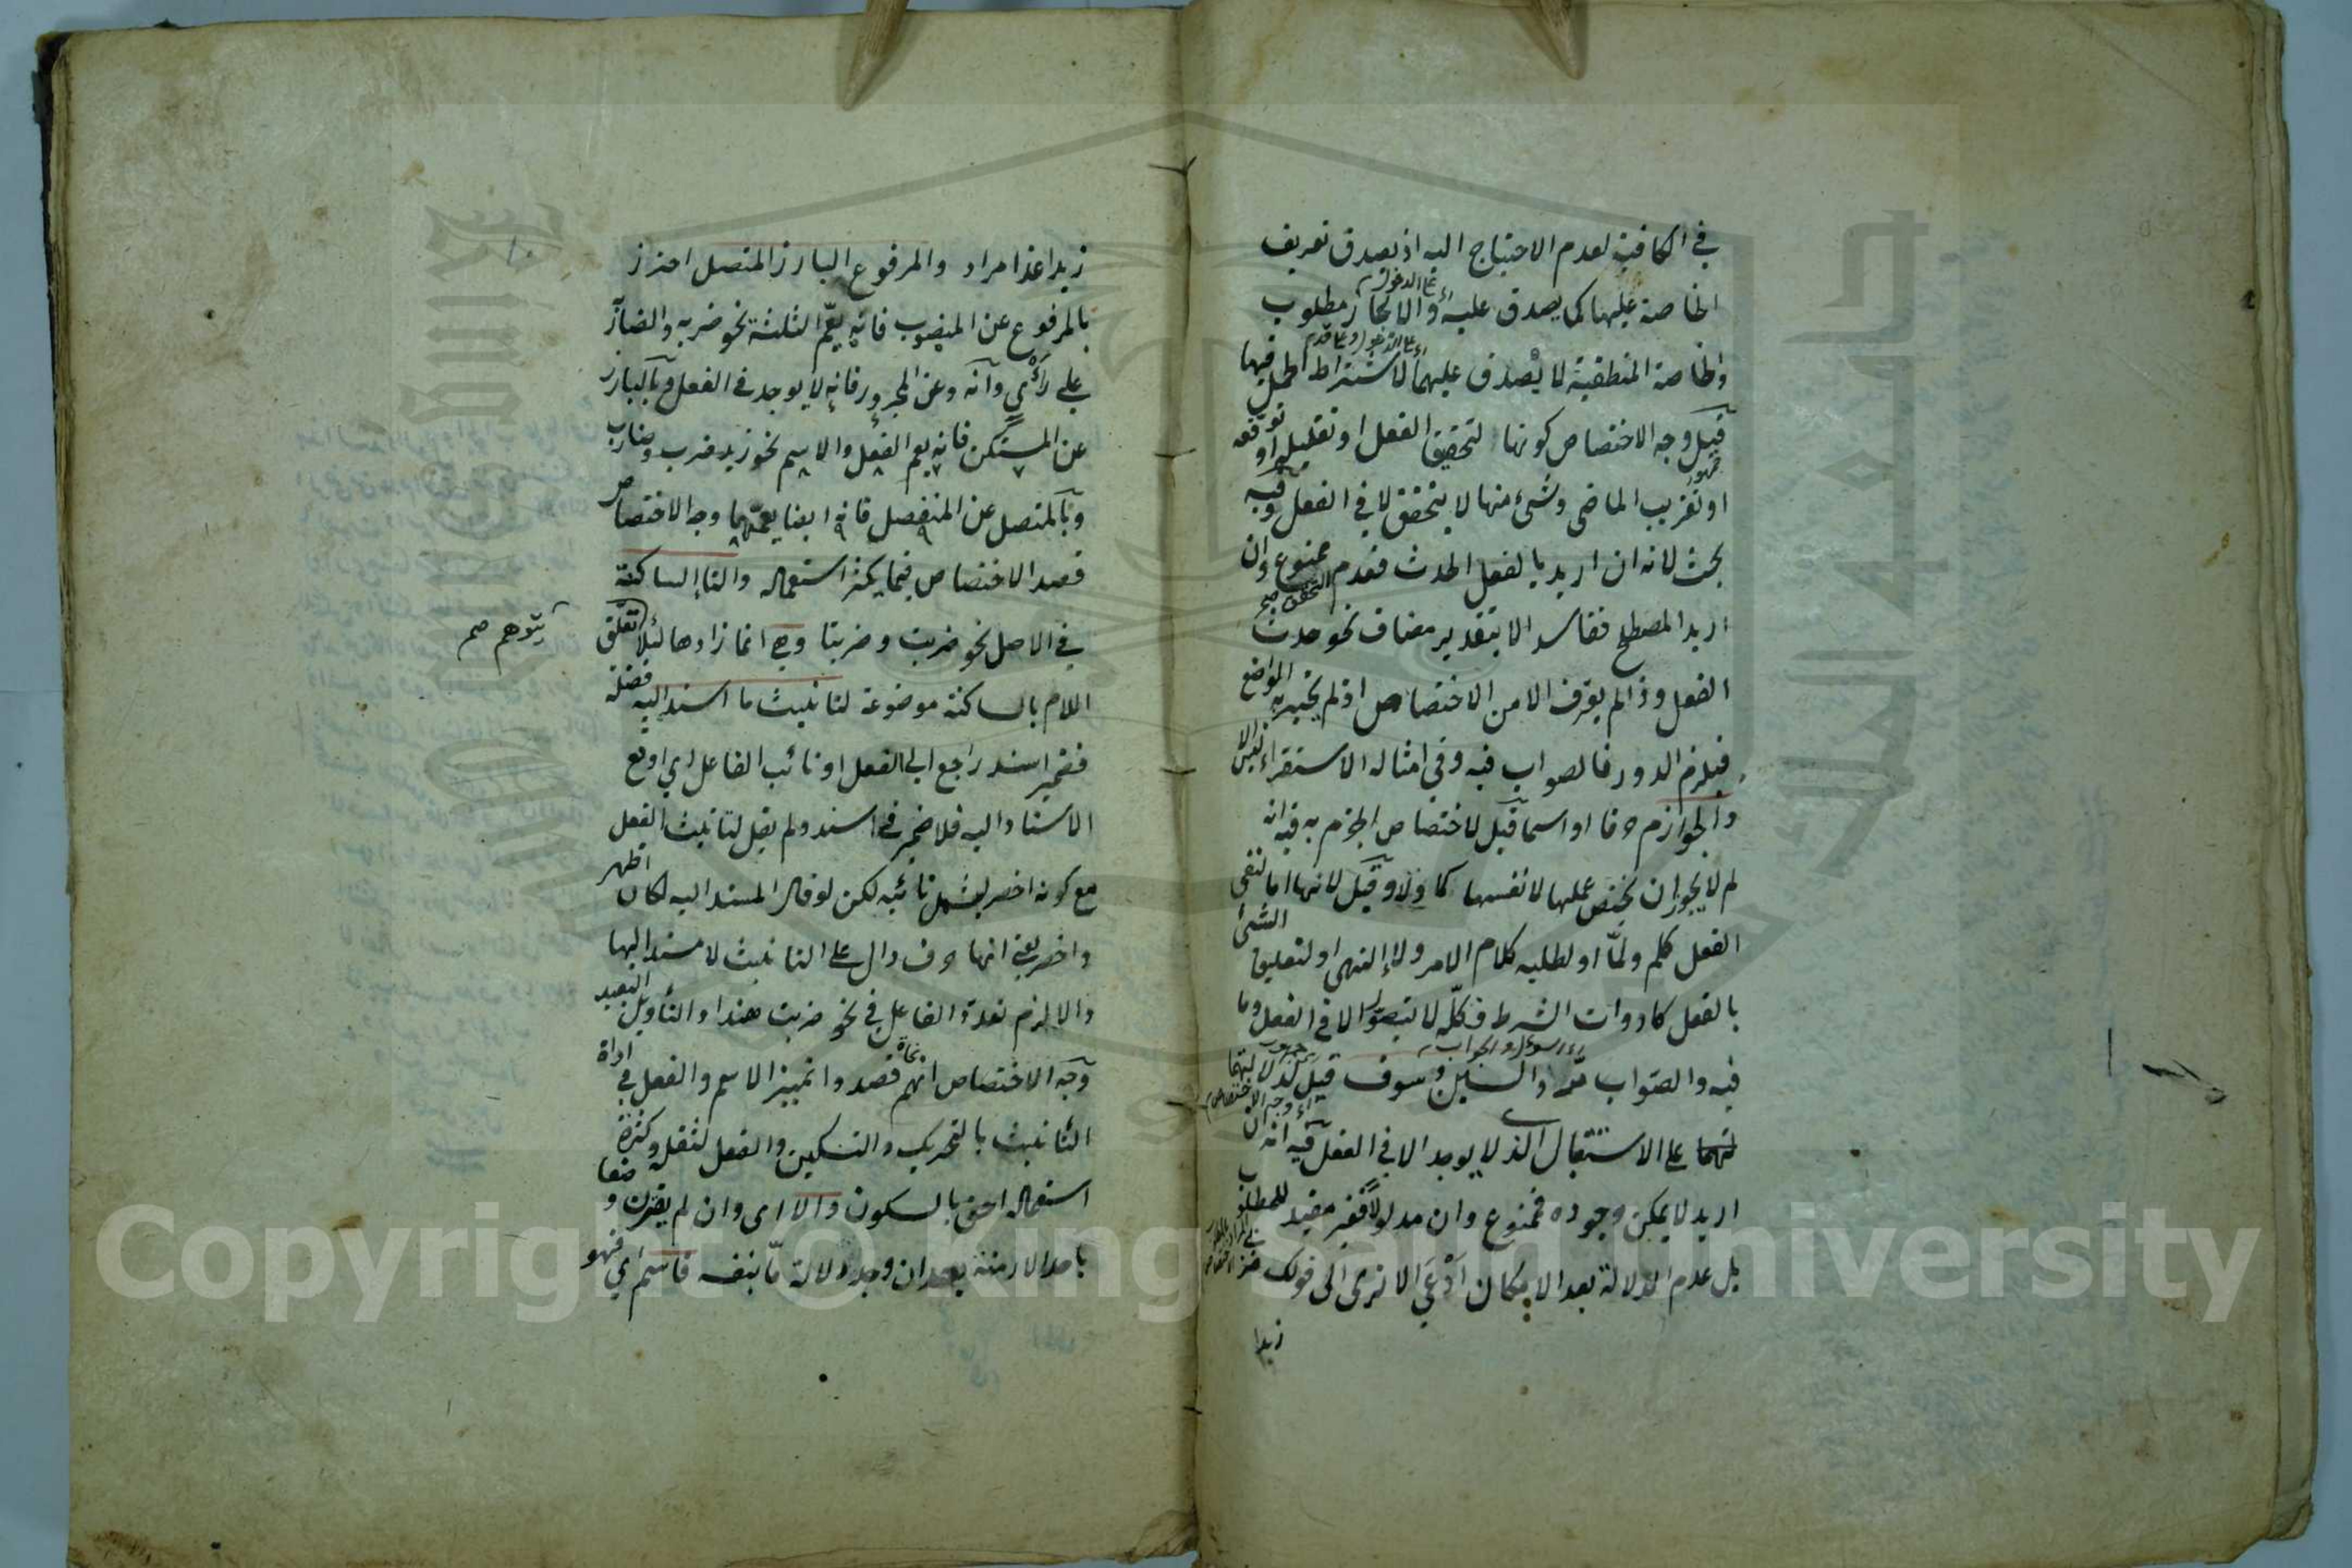 في الكافية لعدم الاحتياج اليه اذ يصدق تعريف
الخاصة عليها كما يصدق عليه والايجاز مطلوب
والخاصة المنطقية لا يصدق عليهما لاشتراط الحمل فيها
قيل وجه الاختصاص كونها لتحقيق الفعل او تقليله او توقعه
او تقريب الماضي وشئ منها لا يتحقق الا في الفعل وفيه
بحث لانه ان اريد بالفعل الحدث فعدم التحقق صح ممنوع وان
اريد المصطلح ففاسد الا بتقدير مضاف نحو حدث
الفعل وذا لم يعرف الا من الاختصاص اذ لم يخبر به الواضع
فيلزم الدور فالصواب فيه وفي امثاله الاستقراء ليس الا
والجوازم حرفا او اسما قيل لاختصاص الجزم به فيه انه
لم لا يجوز ان يختص عملها لا نفسها كما ولا وقيل لانها اما لنفي
الفعل كلم ولما او لطلبه كلام الامر ولا النهي او لتعليق الشئ
بالفعل كادوات الشرط فكل لا يتصور الا في الفعل وما
فيه والصواب مر والسين وسوف قيل لدلالتهما
على الاستقبال الذي لا يوجد الا في الفعل فيه انه ان
اريد لا يمكن وجوده فممنوع وان مدلولا فغير مفيد للمطلوب
بل عدم الدلالة بعد الامكان ادعي الا ترى الى قولك
زيدا
زيدا غدا مراد والمرفوع البارز المتصل احترز
بالمرفوع عن المنصوب فانه يعم الثلثة نحو ضربه والضاربه
على رأي وانه وعن المجرور فانه لا يوجد في الفعل وبالبارز
عن المستكن فانه يعم الفعل والاسم نحو زيد ضرب وضارب
وبالمتصل عن المنفصل فانه ايضا يعمهما وجه الاختصاص
قصد الاختصاص فيما يكثر استعماله والتاء الساكنة
في الاصل نحو ضربت وضربتا وح انما زادها لئلا تعلق
يتوهم صح
اللام بالساكنة موضوعة لتانيث ما اسند اليه فضلة
فضمير اسند راجع الى الفعل او نائب الفاعل اي اوقع
الاسناد اليه فلا ضمير في اسند ولم يقل لتانيث الفعل
مع كونه اخصر ليشمل نائبه لكن لو قال المسند اليه لكان اظهر
واخصر يعني انها حرف دال على التانيث لا مسند اليها
والا لزم تعدد الفاعل في نحو ضربت هند والتأويل البعيد
وجه الاختصاص انهم قصدوا تمييز الاسم والفعل في اداة
التأنيث بالتحريك والتسكين والفعل لثقله وكثرة
استعماله احق بالسكون والا اى وان لم يقترن وضعا
باحد الازمنة بعد ان وجد دلالة ما بنفسه فاسم اي فهو